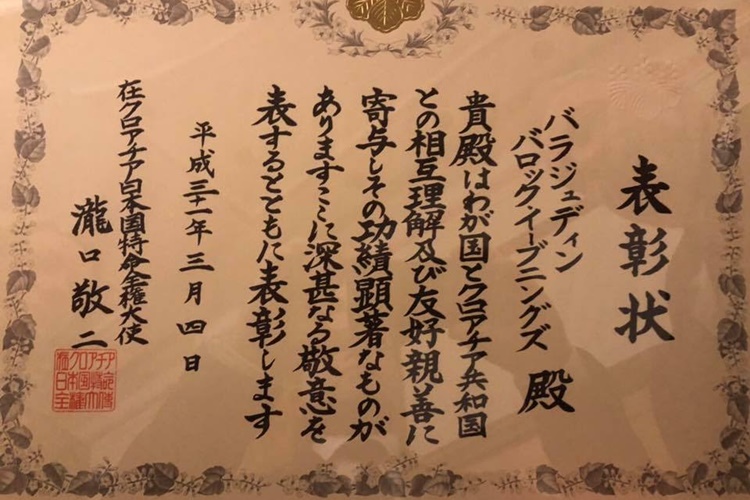 表彰状
バラジュディン
バロックイーブニングズ 殿
貴殿はわが国とクロアチア共和国
との相互理解及び友好親善に
寄与しその功績顕著なものが
ありますここに深甚なる敬意を
表するとともに表彰します
平成三十一年三月四日
在クロアチア日本国特命全権大使
瀧口敬二